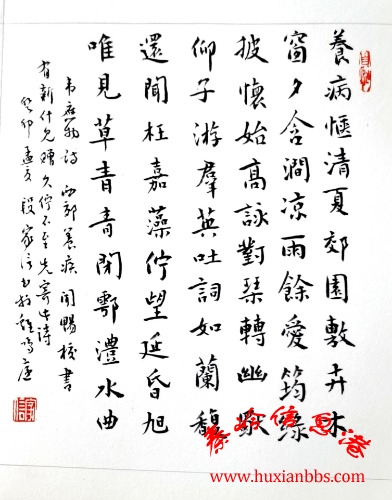 養病愜清夏郊園敷卉木
窗夕含澗凉雨餘愛筠綠
披懷始高詠對琴轉幽
仰子游羣英吐詞如蘭馥
還聞枉嘉藻佇望延昏旭
唯見草青青閉鄠澧水曲
韋應物詩 西郊養疾聞暢校書
有新什見贈久佇不至先寄此詩
癸卯孟夏段家信書於
www.huxianbbs.com